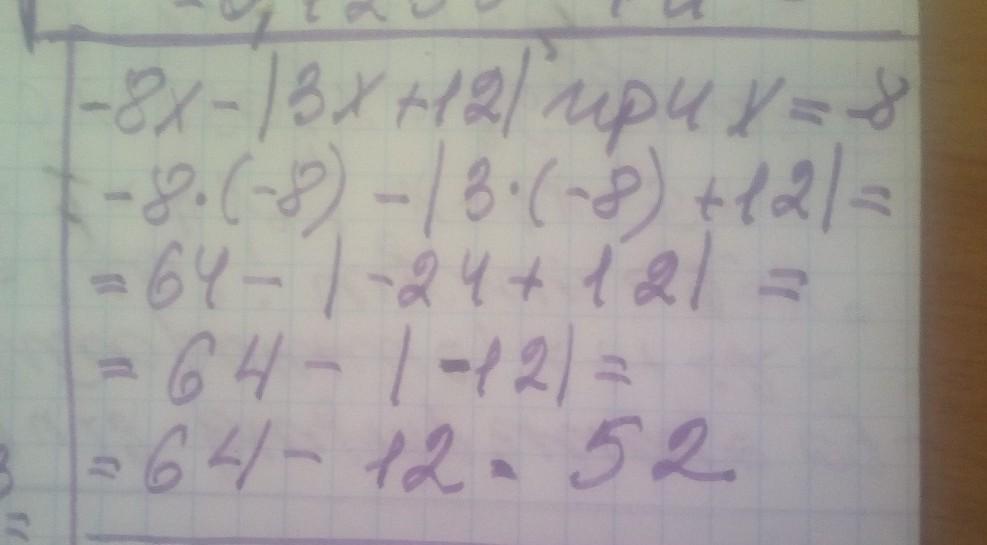 -8x-|3x+12| при x=-8
-8·(-8) -|3·(-8) +12|=
=64-|-24+12| =
= 64 - |-12|=
=64- 12 = 52